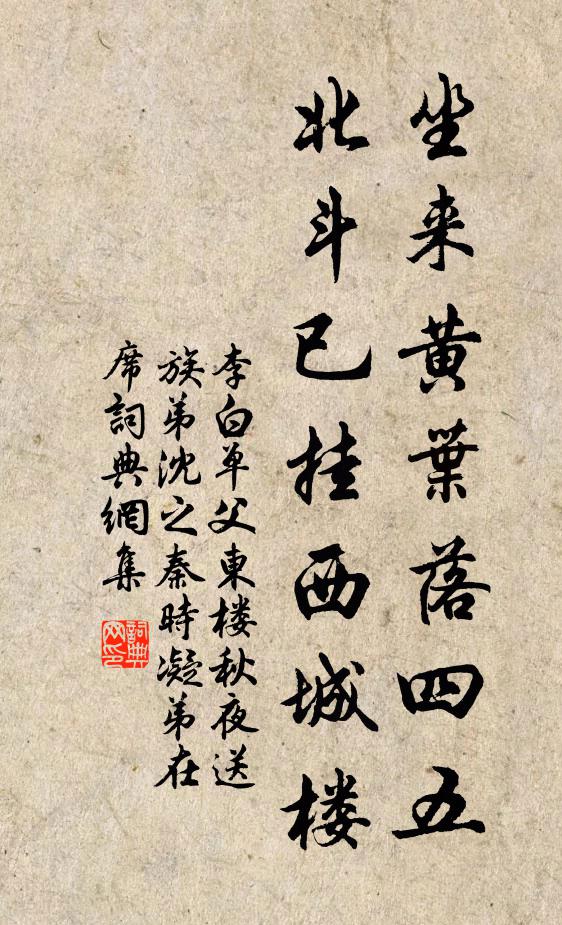 坐来黄葉落四五
北斗已挂西城楼
李白单父東楼秋夜送
族弟沈之秦時凝弟在
席詞典網集
詞典
网印